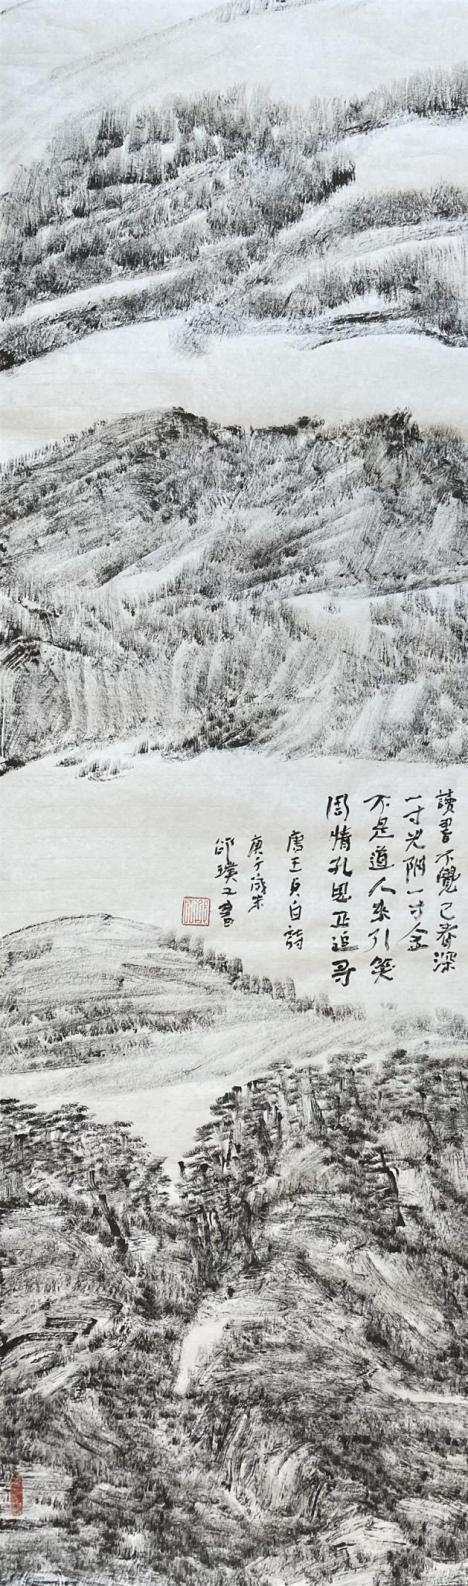 讀書不覺已春深
一寸光阴一寸金
不是道人来引笑
周情孔思正追寻
唐王贞白詩
庚子歲末
璞又書